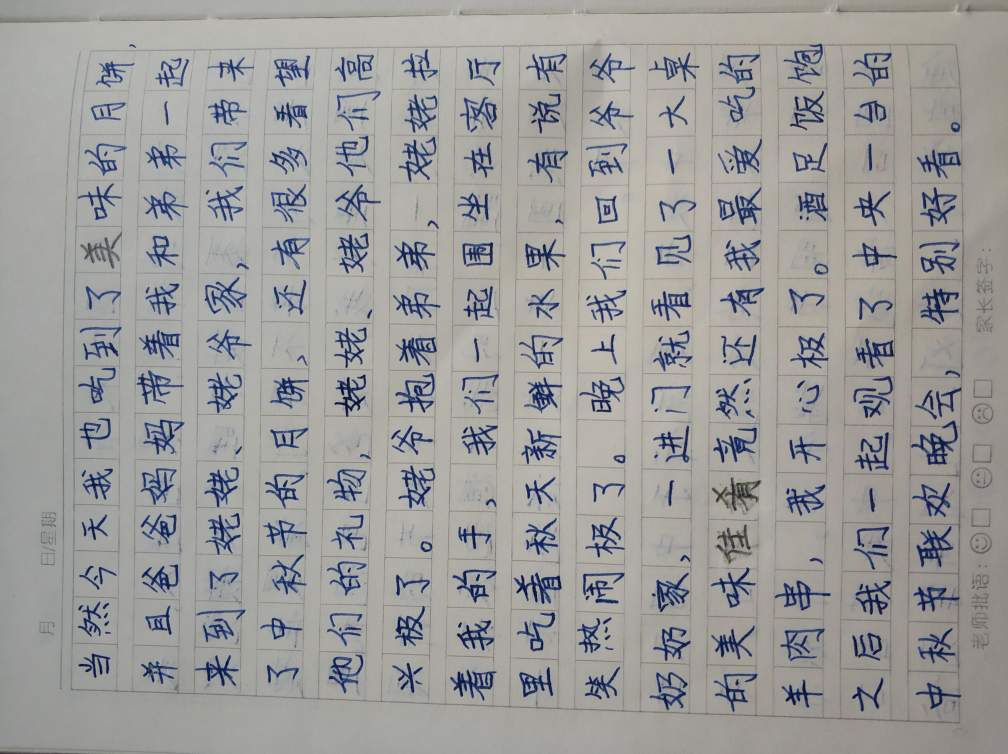 月 日/星期
当然今天我也吃到了美味的月饼,
并且爸爸妈妈带着我和弟弟一起
来到了姥姥、姥爷家,我们带来
了中秋节的月饼、还有很多看望
他们的礼物,姥姥、姥爷他们高
兴极了。姥爷抱着弟弟,姥姥拉
着我的手,我们一起围坐在客厅
里吃着秋天新鲜的水果,有说有
笑热闹极了。晚上我们回到爷爷
奶奶家,一进门就看见了一大桌
的美味佳肴竟然还有我最爱吃的
羊肉串,我开心极了。酒足饭饱
之后我们一起观看了中央一台的
中秋节联欢晚会,特别好看。
老师批语: 家长签字: